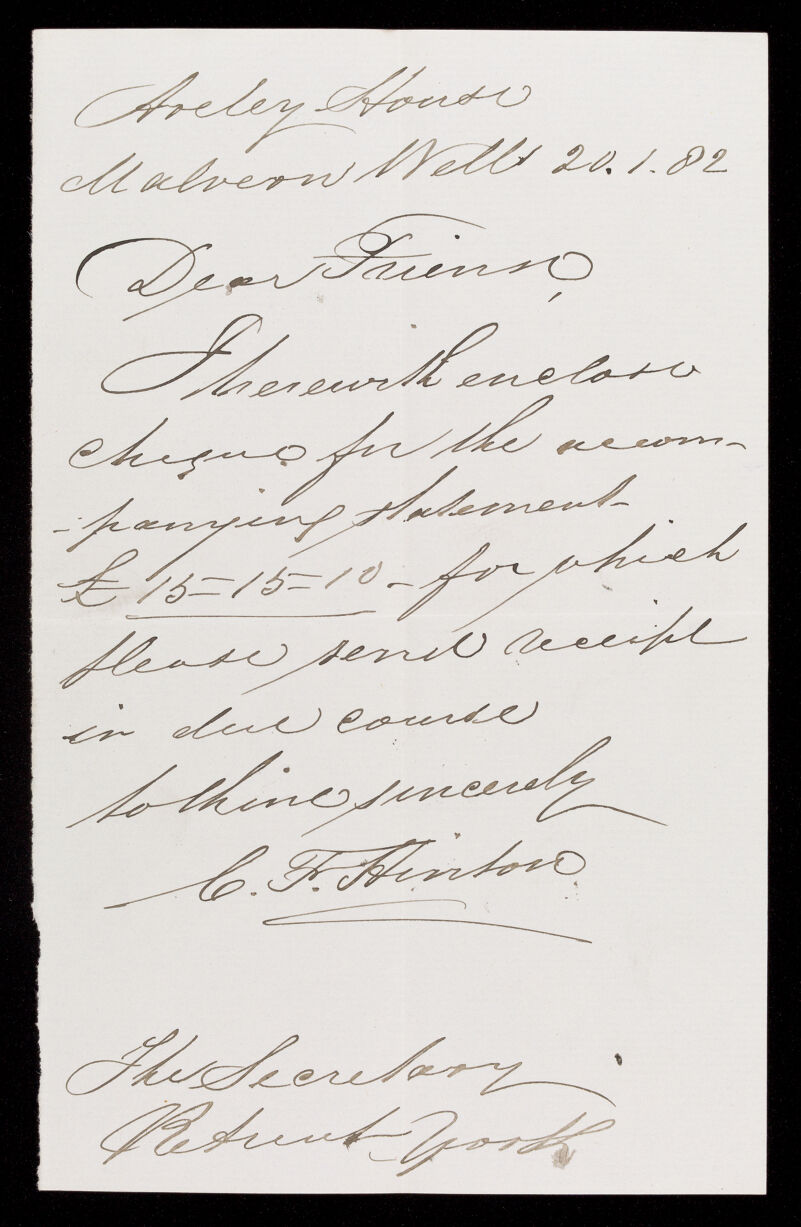 Areley House
Malvern Wells 20.1.82
Dear Friend,
I herewith enclose
cheque for the accom-
-panying statement-
£15=15=10 - for which
please send receipt
in due course
to thine sincerely
C. F. Hinton
The Secretary
Retreat York